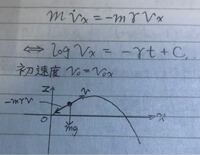 m v̇x = -mγvx
⇔ log vx = -γt + C,
初速度 v₀ = v₀x
z
v
-mγv
0
mg
x